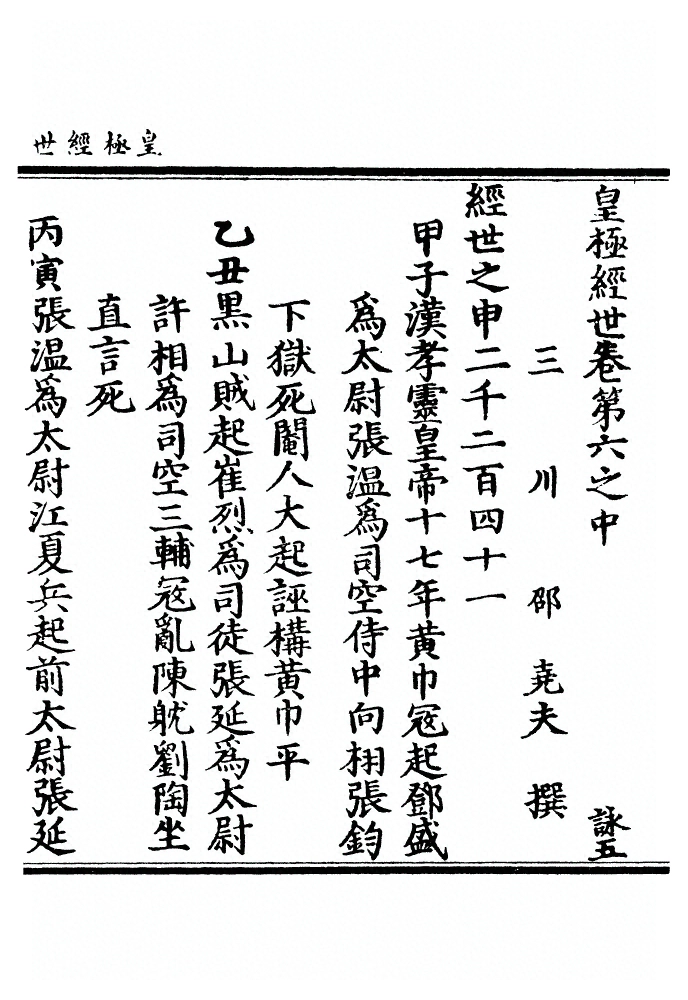 皇極經世
皇極經世卷第六之中 詠五
三川 邵堯夫 撰
經世之申二千二百四十一
甲子漢孝靈皇帝十七年黄巾冦起鄧盛
爲太尉張温爲司空侍中向栩張鈞
下獄死閹人大起誣構黄巾平
乙丑黒山賊起崔烈爲司徒張延爲太尉
許相爲司空三輔冦亂陳躭劉陶坐
直言死
丙寅張温爲太尉江夏兵起前太尉張延